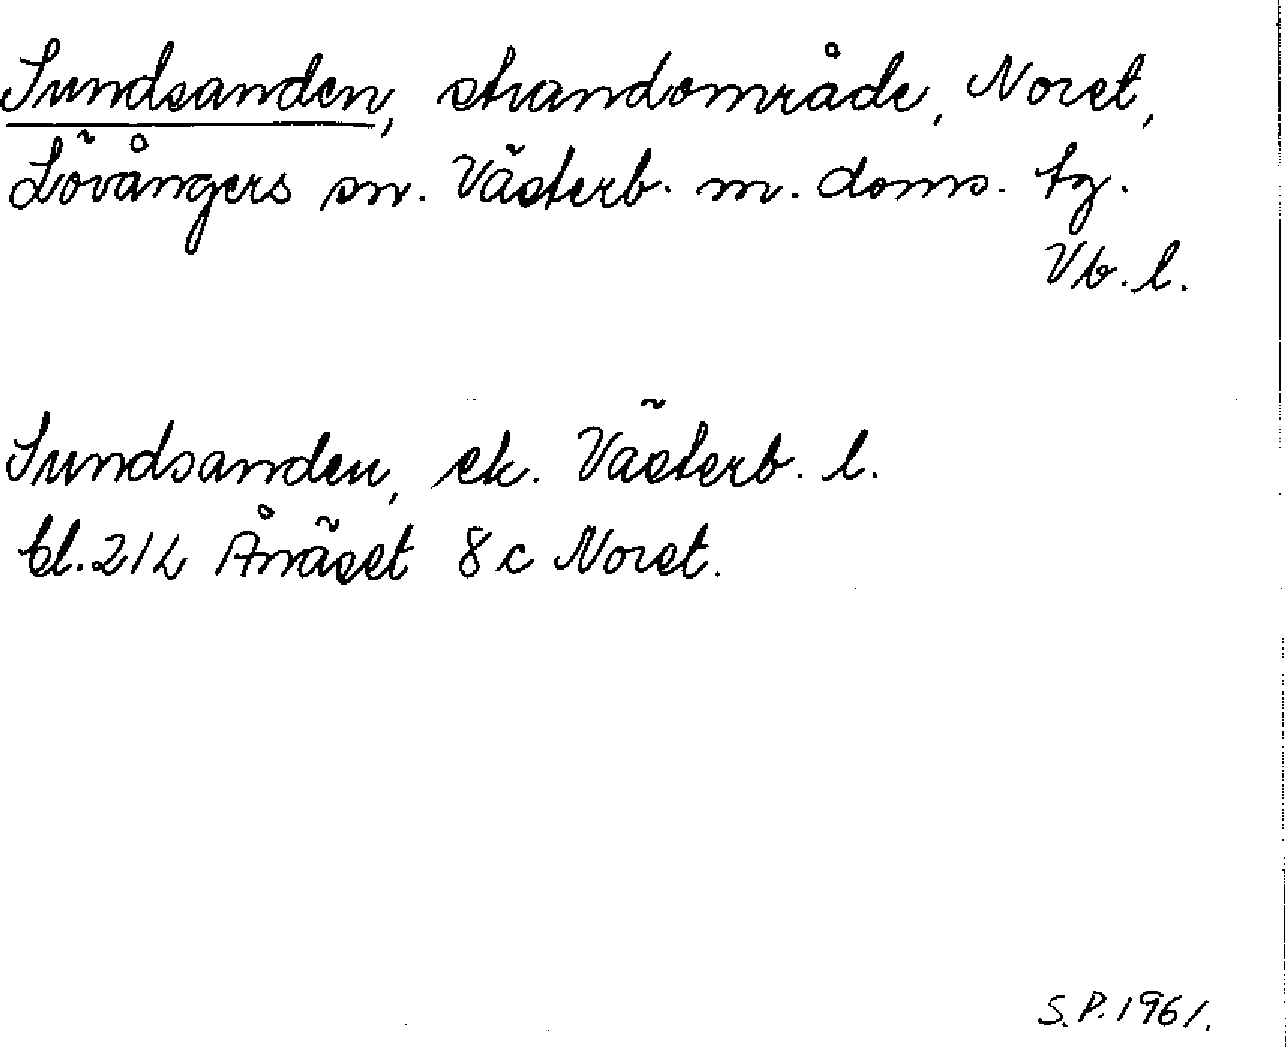 Sundsanden, strandområde, Noret,
Lövångers sn. Västerb. m. doms. tg.
Vb. l.
Sundsanden, ek. Västerb. l.
bl. 21L Ånäset 8c Noret.
S.P. 1961.